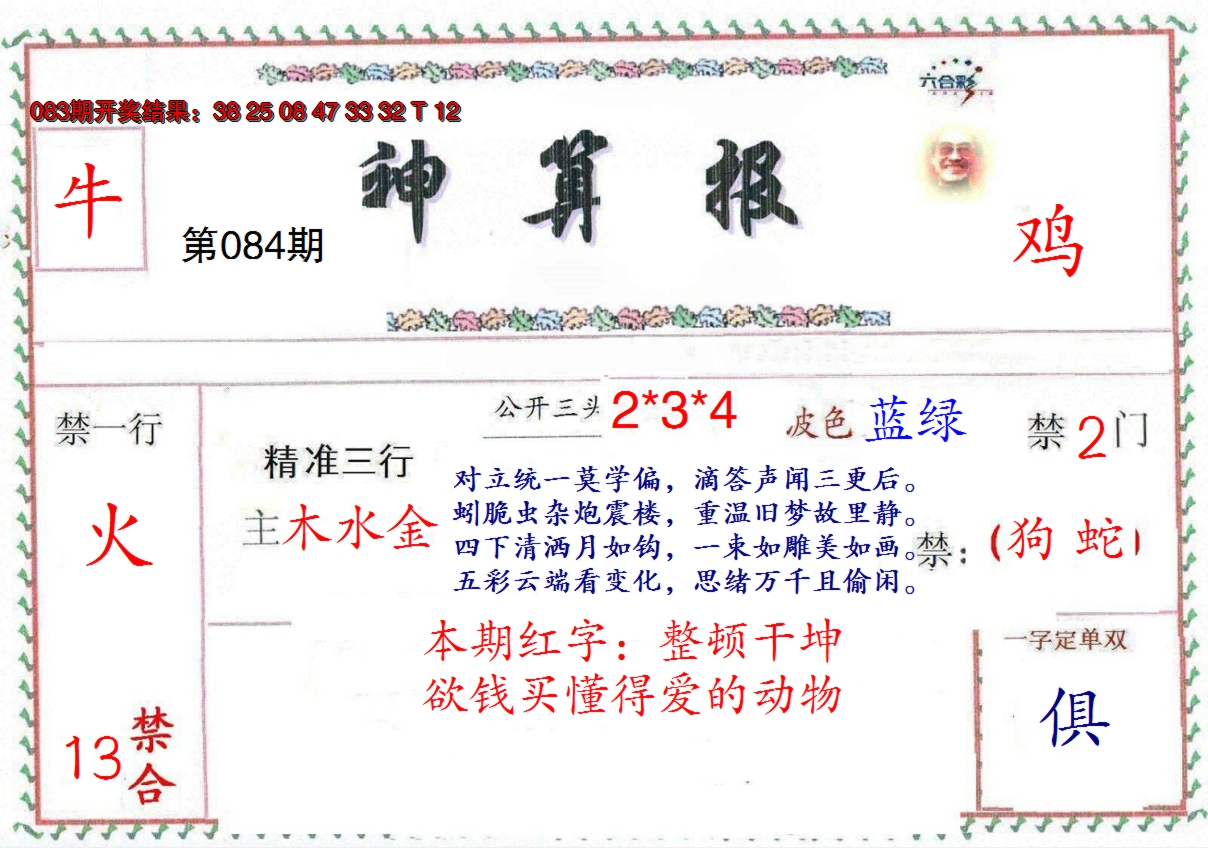 六合彩
083期开奖结果：38 25 08 47 33 32 T 12
牛
神算报
第084期
鸡
禁一行
火
13禁合
精准三行
主木水金
公开三头 2*3*4
波色 蓝绿
禁2门
禁：(狗 蛇)
对立统一莫学偏，滴答声闻三更后。
蚓脆虫杂炮震楼，重温旧梦故里静。
四下清洒月如钩，一束如雕美如画。
五彩云端看变化，思绪万千且偷闲。
本期红字：整顿干坤
欲钱买懂得爱的动物
一字定单双
俱